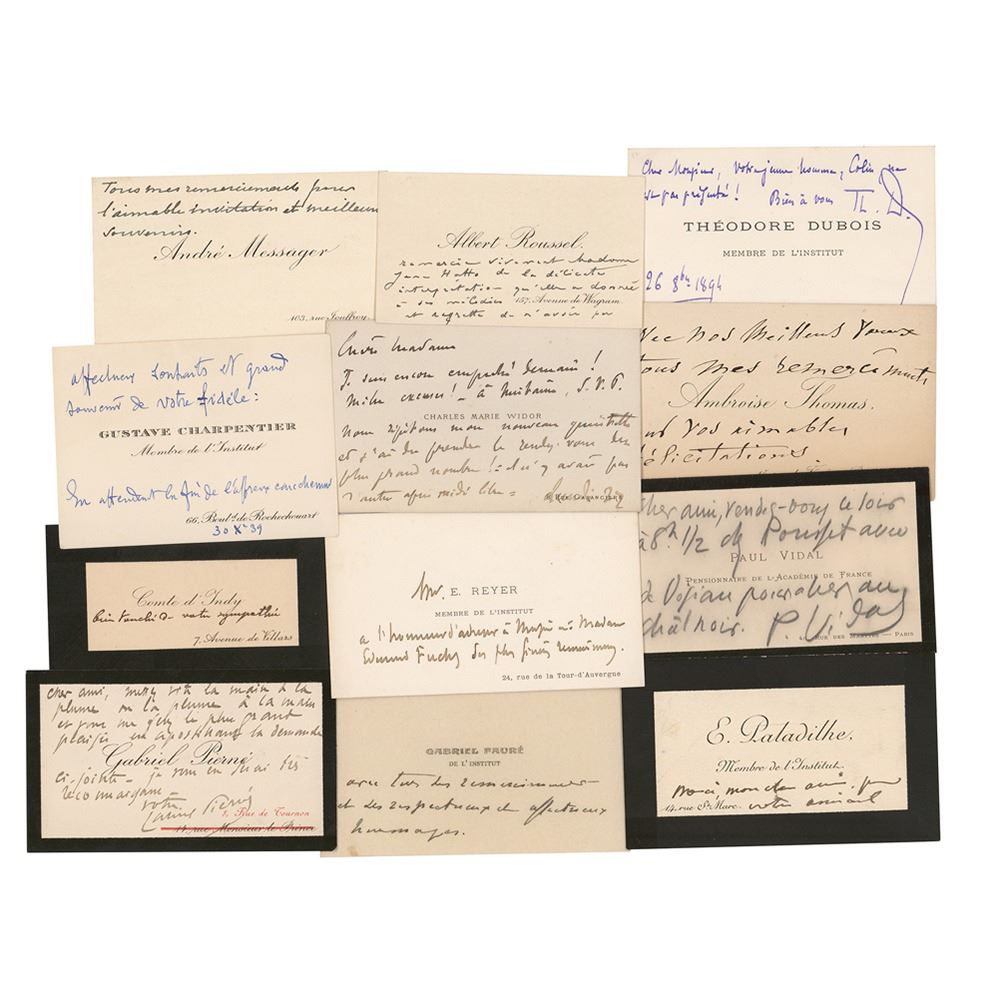 Tous mes remerciements pour
l'aimable invitation et meilleurs
souvenirs.
André Messager
103, rue Jouffroy
Albert Roussel.
remercie vivement Madame
Jane Hatto de la délicate
interprétation qu'elle a donnée
à ses mélodies 157, Avenue de Wagram
et regrette de n'avoir pu
Cher Monsieur, Votre jeune homme, Colin, ne
s'est pas présenté !
Bien à vous Th. D.
THÉODORE DUBOIS
MEMBRE DE L'INSTITUT
26 8bre 1894
affectueux souhaits et grand
souvenir de votre fidèle :
GUSTAVE CHARPENTIER
Membre de l'Institut
En attendant la fin de l'affreux cauchemar
66, Boul.d de Rochechouart
30 Xe 39
Chère Madame
Je suis encore empêché demain !
Mille excuses ! — à huitaine, S.V.P.
CHARLES MARIE WIDOR
nous répétons mon nouveau quintette
et j'ai dû prendre le rendez-vous du
plus grand nombre : il n'y avait pas
d'autre après midi libre =
Avec nos Meilleurs Voeux
tous mes remerciments
Ambroise Thomas.
vos aimables
félicitations.
Comte d'Indy
bien touché de votre sympathie
7, Avenue de Villars
Mr. E. REYER
MEMBRE DE L'INSTITUT
a l'honneur d'adresser à Monsieur et à Madame
Edmond Fuchs ses plus sincères remerciements.
24, rue de la Tour-d'Auvergne
Cher ami, rendez-vous ce soir
à 8h 1/2 chez Pousset avec
PAUL VIDAL
PENSIONNAIRE DE L'ACADÉMIE DE FRANCE
de pour aller au
Chat noir. P Vidal
RUE DES MARTYRS — PARIS
Cher ami, mettez la main à la
plume ou la plume à la main
et vous me ferez le plus grand
plaisir en apostillant la demande
Gabriel Pierné
ci-jointe — je vous en serai très
reconnaissant.
votre
Gabriel Pierné
8, Rue de Tournon
14, rue Monsieur le Prince
GABRIEL FAURÉ
DE L'INSTITUT
avec tous ses remerciements
et ses respectueux et affectueux
hommages.
E. Paladilhe.
Membre de l'Institut.
Merci, mon cher ami, pour
14, rue St Marc. votre amical